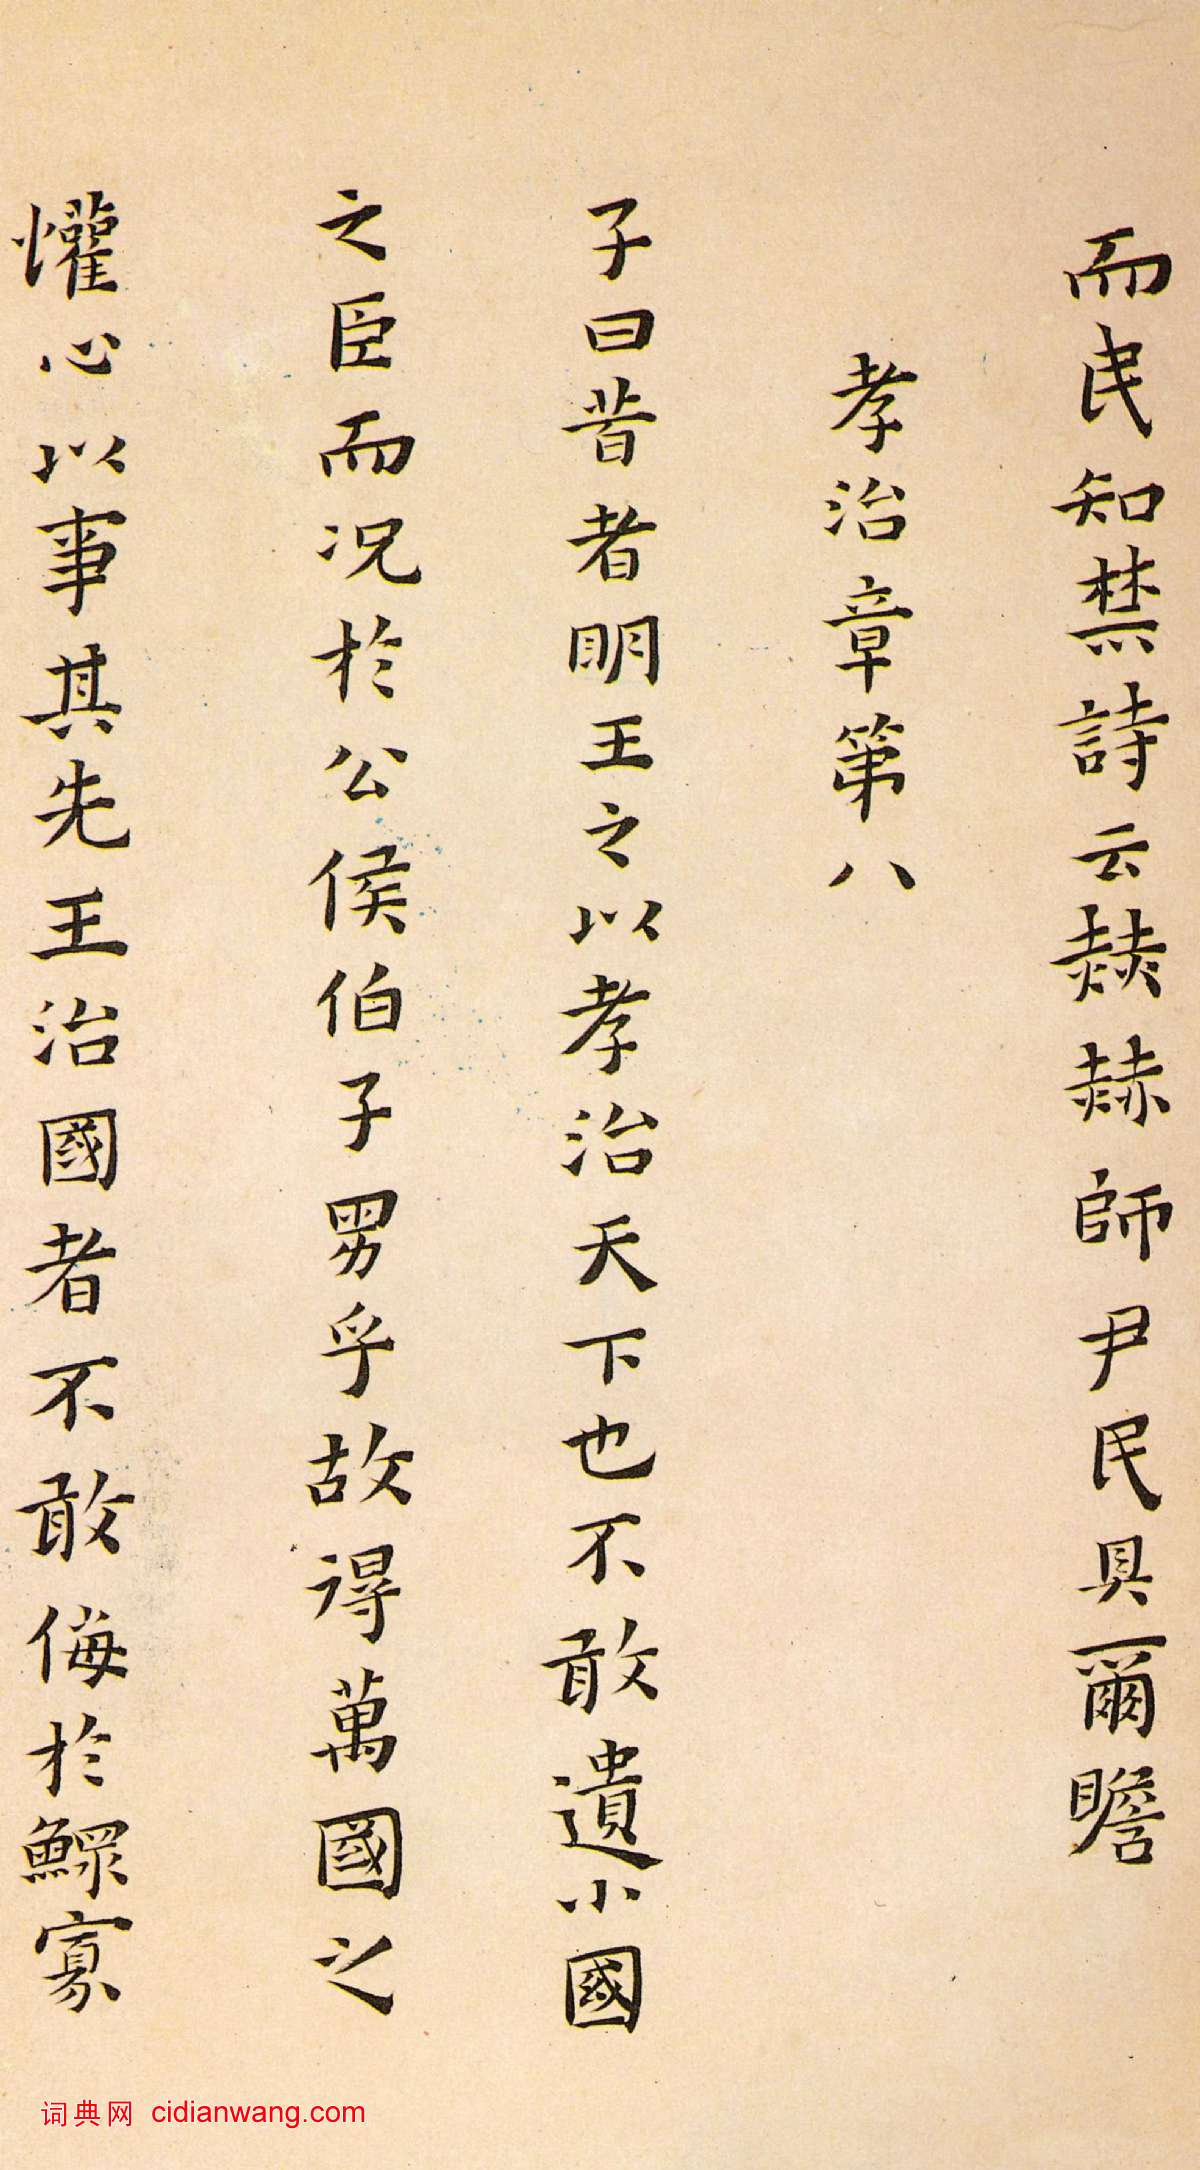 而民知禁詩云赫赫師尹民具爾瞻
孝治章第八
子曰昔者明王之以孝治天下也不敢遺小國
之臣而況於公侯伯子男乎故得萬國之
懽心以事其先王治國者不敢侮於鰥寡
词典网 cidianwang.com